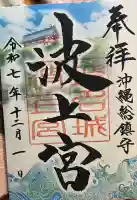 奉拝
沖縄総鎮守
波上宮
令和七年十二月一日